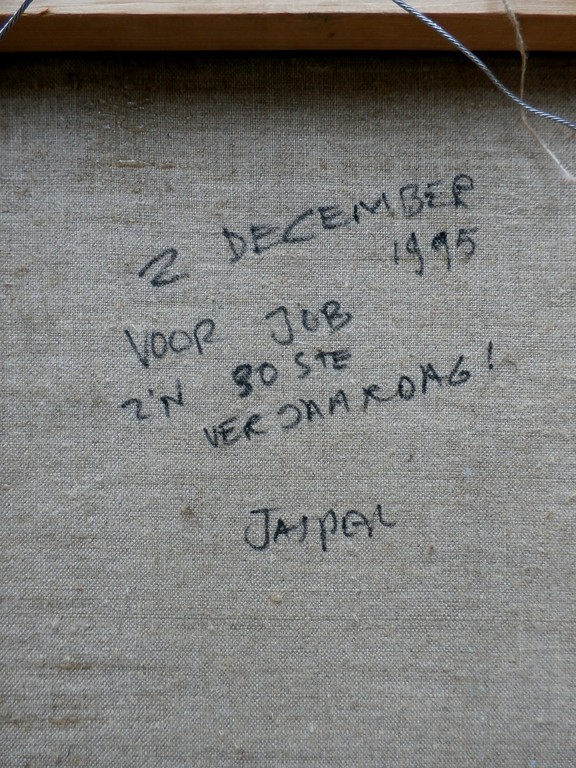 2 DECEMBER
1995
VOOR JOB
Z'N 30 STE
VERJAARDAG!
JASPER